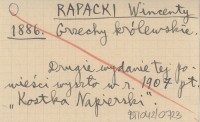 RAPACKI Wincenty
1886. Grzechy królewskie.
Drugie wydanie tej po-
wieści wyszło w r. 1907 pt.
„Kostka Napierski"